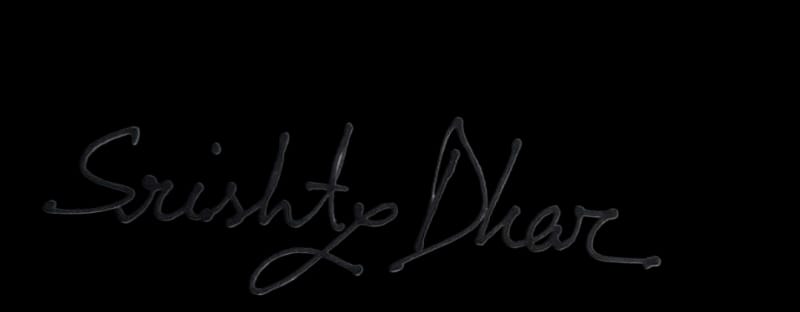 Srishty Dhar